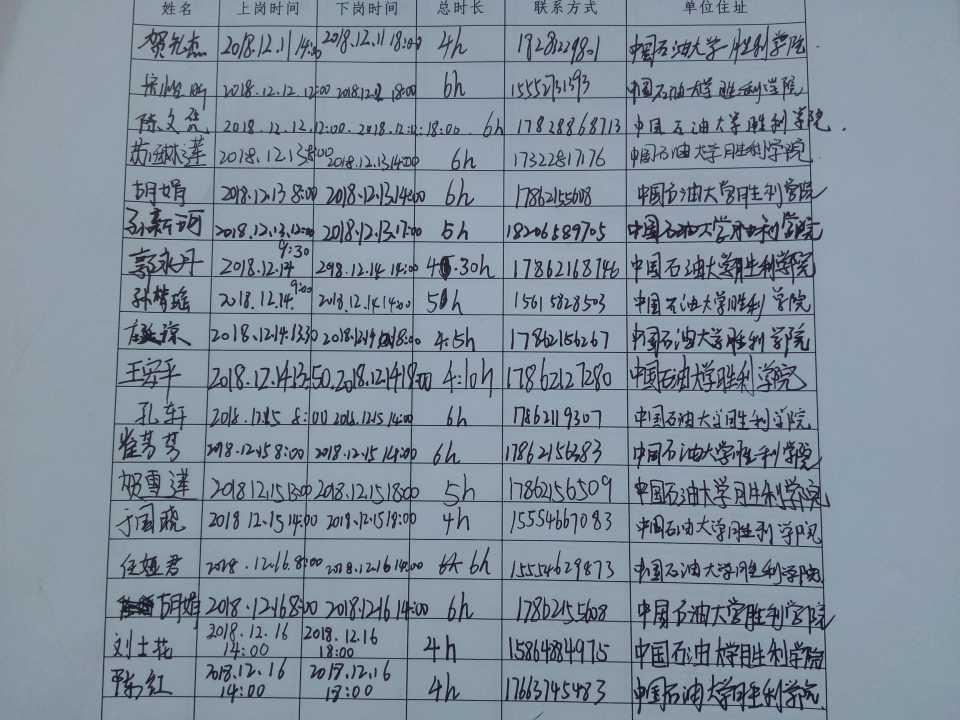 姓名 上岗时间 下岗时间 总时长 联系方式 单位住址
2018.12.11 14:00 2018.12.11 18:00 4h 中国石油大学胜利学院
2018.12.12 12:00 2018.12.12 18:00 6h 中国石油大学胜利学院
陈文 2018.12.12.12:00 2018.12.12:18:00 6h 17828868713 中国石油大学胜利学院.
2018.12.13 8:00 2018.12.13 14:00 6h 17322817176 中国石油大学胜利学院
胡娟 2018.12.13 8:00 2018.12.13 14:00 6h 17862155608 中国石油大学胜利学院
孙新珂 2018.12.13.12:00 2018.12.13.17:00 5h 18206589705 中国石油大学胜利学院
郭永丹 2018.12.14 9:30 2018.12.14 14:00 4.30h 17862168746 中国石油大学胜利学院
孙梦瑶 2018.12.14 9:00 2018.12.14 14:00 5h 15615828503 中国石油大学胜利学院
2018.12.14.13:30 2018.12.14 18:00 4.5h 17862156267 中国石油大学胜利学院
王安平 2018.12.14 13:50 2018.12.14 18:00 4:10h 17862127280 中国石油大学胜利学院
孔轩 2018.12.15 8:00 2018.12.15 14:00 6h 17862119307 中国石油大学胜利学院
崔芳芳 2018.12.15 8:00 2018.12.15 14:00 6h 17862156283 中国石油大学胜利学院
贺雪莲 2018.12.15 13:00 2018.12.15 18:00 5h 17862156509 中国石油大学胜利学院
于国晓 2018 12.15 14:00 2018.12.15 18:00 4h 15554667083 中国石油大学胜利学院
任娅君 2018.12.16.8:00 2018.12.16 14:00 6h 15554629873 中国石油大学胜利学院
胡娟 2018.12.16 8:00 2018.12.16 14:00 6h 17862155608 中国石油大学胜利学院
刘士花 2018.12.16 14:00 2018.12.16 18:00 4h 15864884975 中国石油大学胜利学院
陈红 2018.12.16 14:00 2018.12.16 18:00 4h 17663745483 中国石油大学胜利学院.